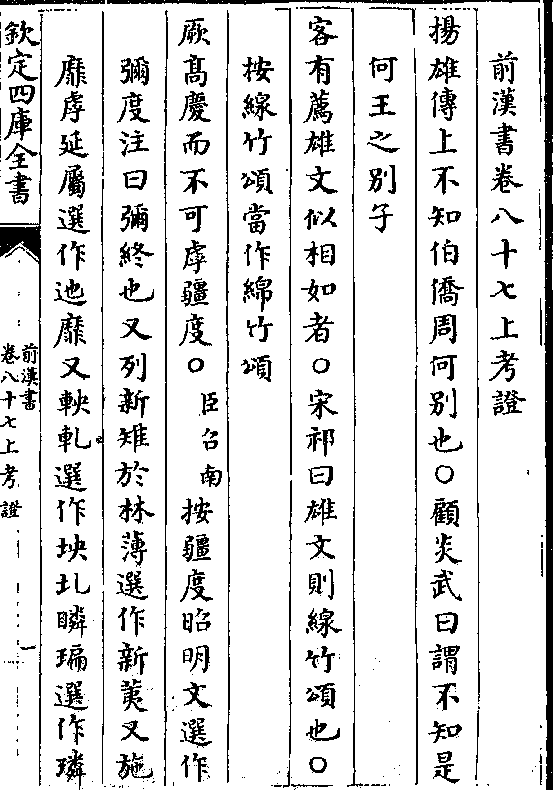 前漢書卷八十七上考證
揚雄傳上不知伯僑周何別也○顧炎武曰謂不知是
何王之別子
客有薦雄文似相如者○宋祁曰雄文則線竹頌也○
按線竹頌當作綿竹頌
厥高慶而不可虖疆度○臣召南按疆度昭明文選作
彌度注曰彌終也又列新雉於林薄選作新荑又施
靡虖延屬選作迆靡又軮軋選作坱圠瞵㻞選作璘
欽定四庫全書
前漢書
卷八十七上考證
一